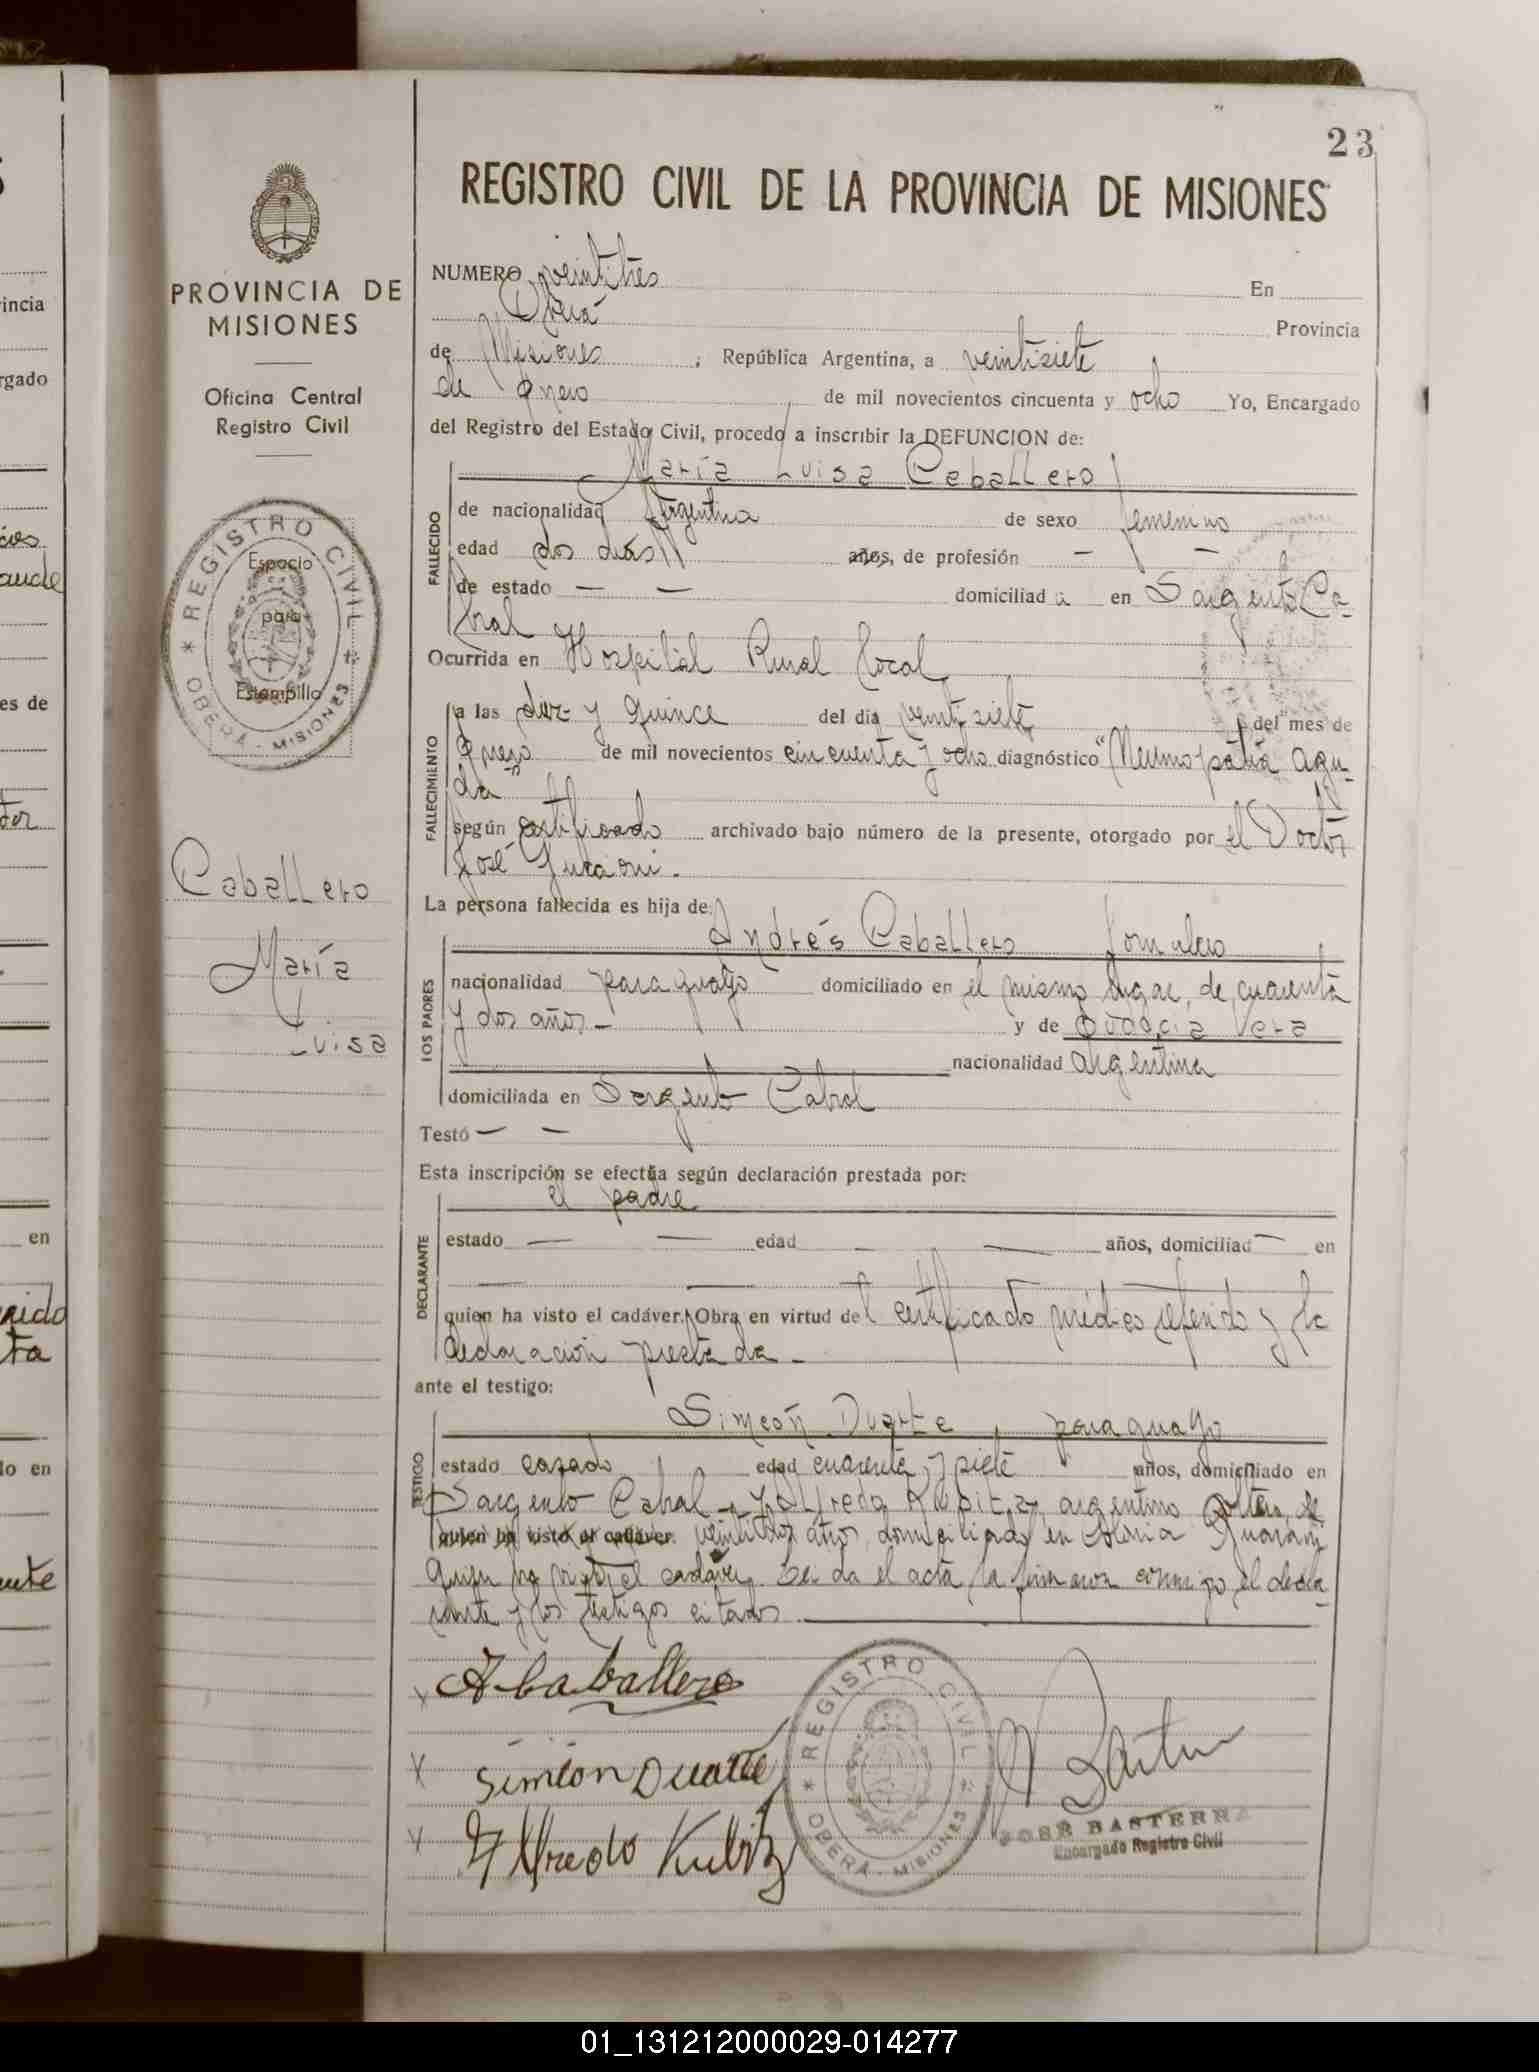 23
REGISTRO CIVIL DE LA PROVINCIA DE MISIONES
PROVINCIA DE
MISIONES
Oficina Central
Registro Civil
REGISTRO CIVIL
OBERÁ - MISIONES
Espacio
para
Estampilla
Caballero
María
Luisa
NUMERO veintitrés En
Oberá Provincia
de Misiones, República Argentina, a veintisiete
de Enero de mil novecientos cincuenta y ocho Yo, Encargado
del Registro del Estado Civil, procedo a inscribir la DEFUNCION de:
María Luisa Caballero
FALLECIDO
de nacionalidad Argentina de sexo femenino
edad dos días años, de profesión —
de estado — — domiciliada en Sargento Ca-
bral
Ocurrida en Hospital Rural local
FALLECIMIENTO
a las diez y quince del día veintisiete del mes de
Enero de mil novecientos cincuenta y ocho diagnóstico "Neumopatía agu-
da
según certificado archivado bajo número de la presente, otorgado por el Doctor
José
La persona fallecida es hija de:
Andrés Caballero Jornalero
LOS PADRES
nacionalidad paraguayo domiciliado en el mismo lugar, de cuarenta
y dos años.- y de Vera
nacionalidad argentina
domiciliada en Sargento Cabral
Testó — —
Esta inscripción se efectúa según declaración prestada por:
el padre
DECLARANTE
estado — — edad — — años, domiciliad— en
quien ha visto el cadáver. Obra en virtud del certificado médico referido y la
declaración prestada.-
ante el testigo:
Simeón Duarte, paraguayo
TESTIGO
estado casado edad cuarenta y siete años, domiciliado en
Sargento Cabral y Alfredo Kubitz, argentino soltero de
quien ha visto el cadáver. veintidos años, domiciliado en Colonia Guaraní
quien ha visto el cadáver. Leida el acta la firmaron conmigo el decla-
rante y los testigos citados.
A Caballero
Simeon Duarte
Alfredo Kubitz
REGISTRO CIVIL
OBERÁ - MISIONES
JOSE BASTERRA
Encargado Registro Civil
01_131212000029-014277